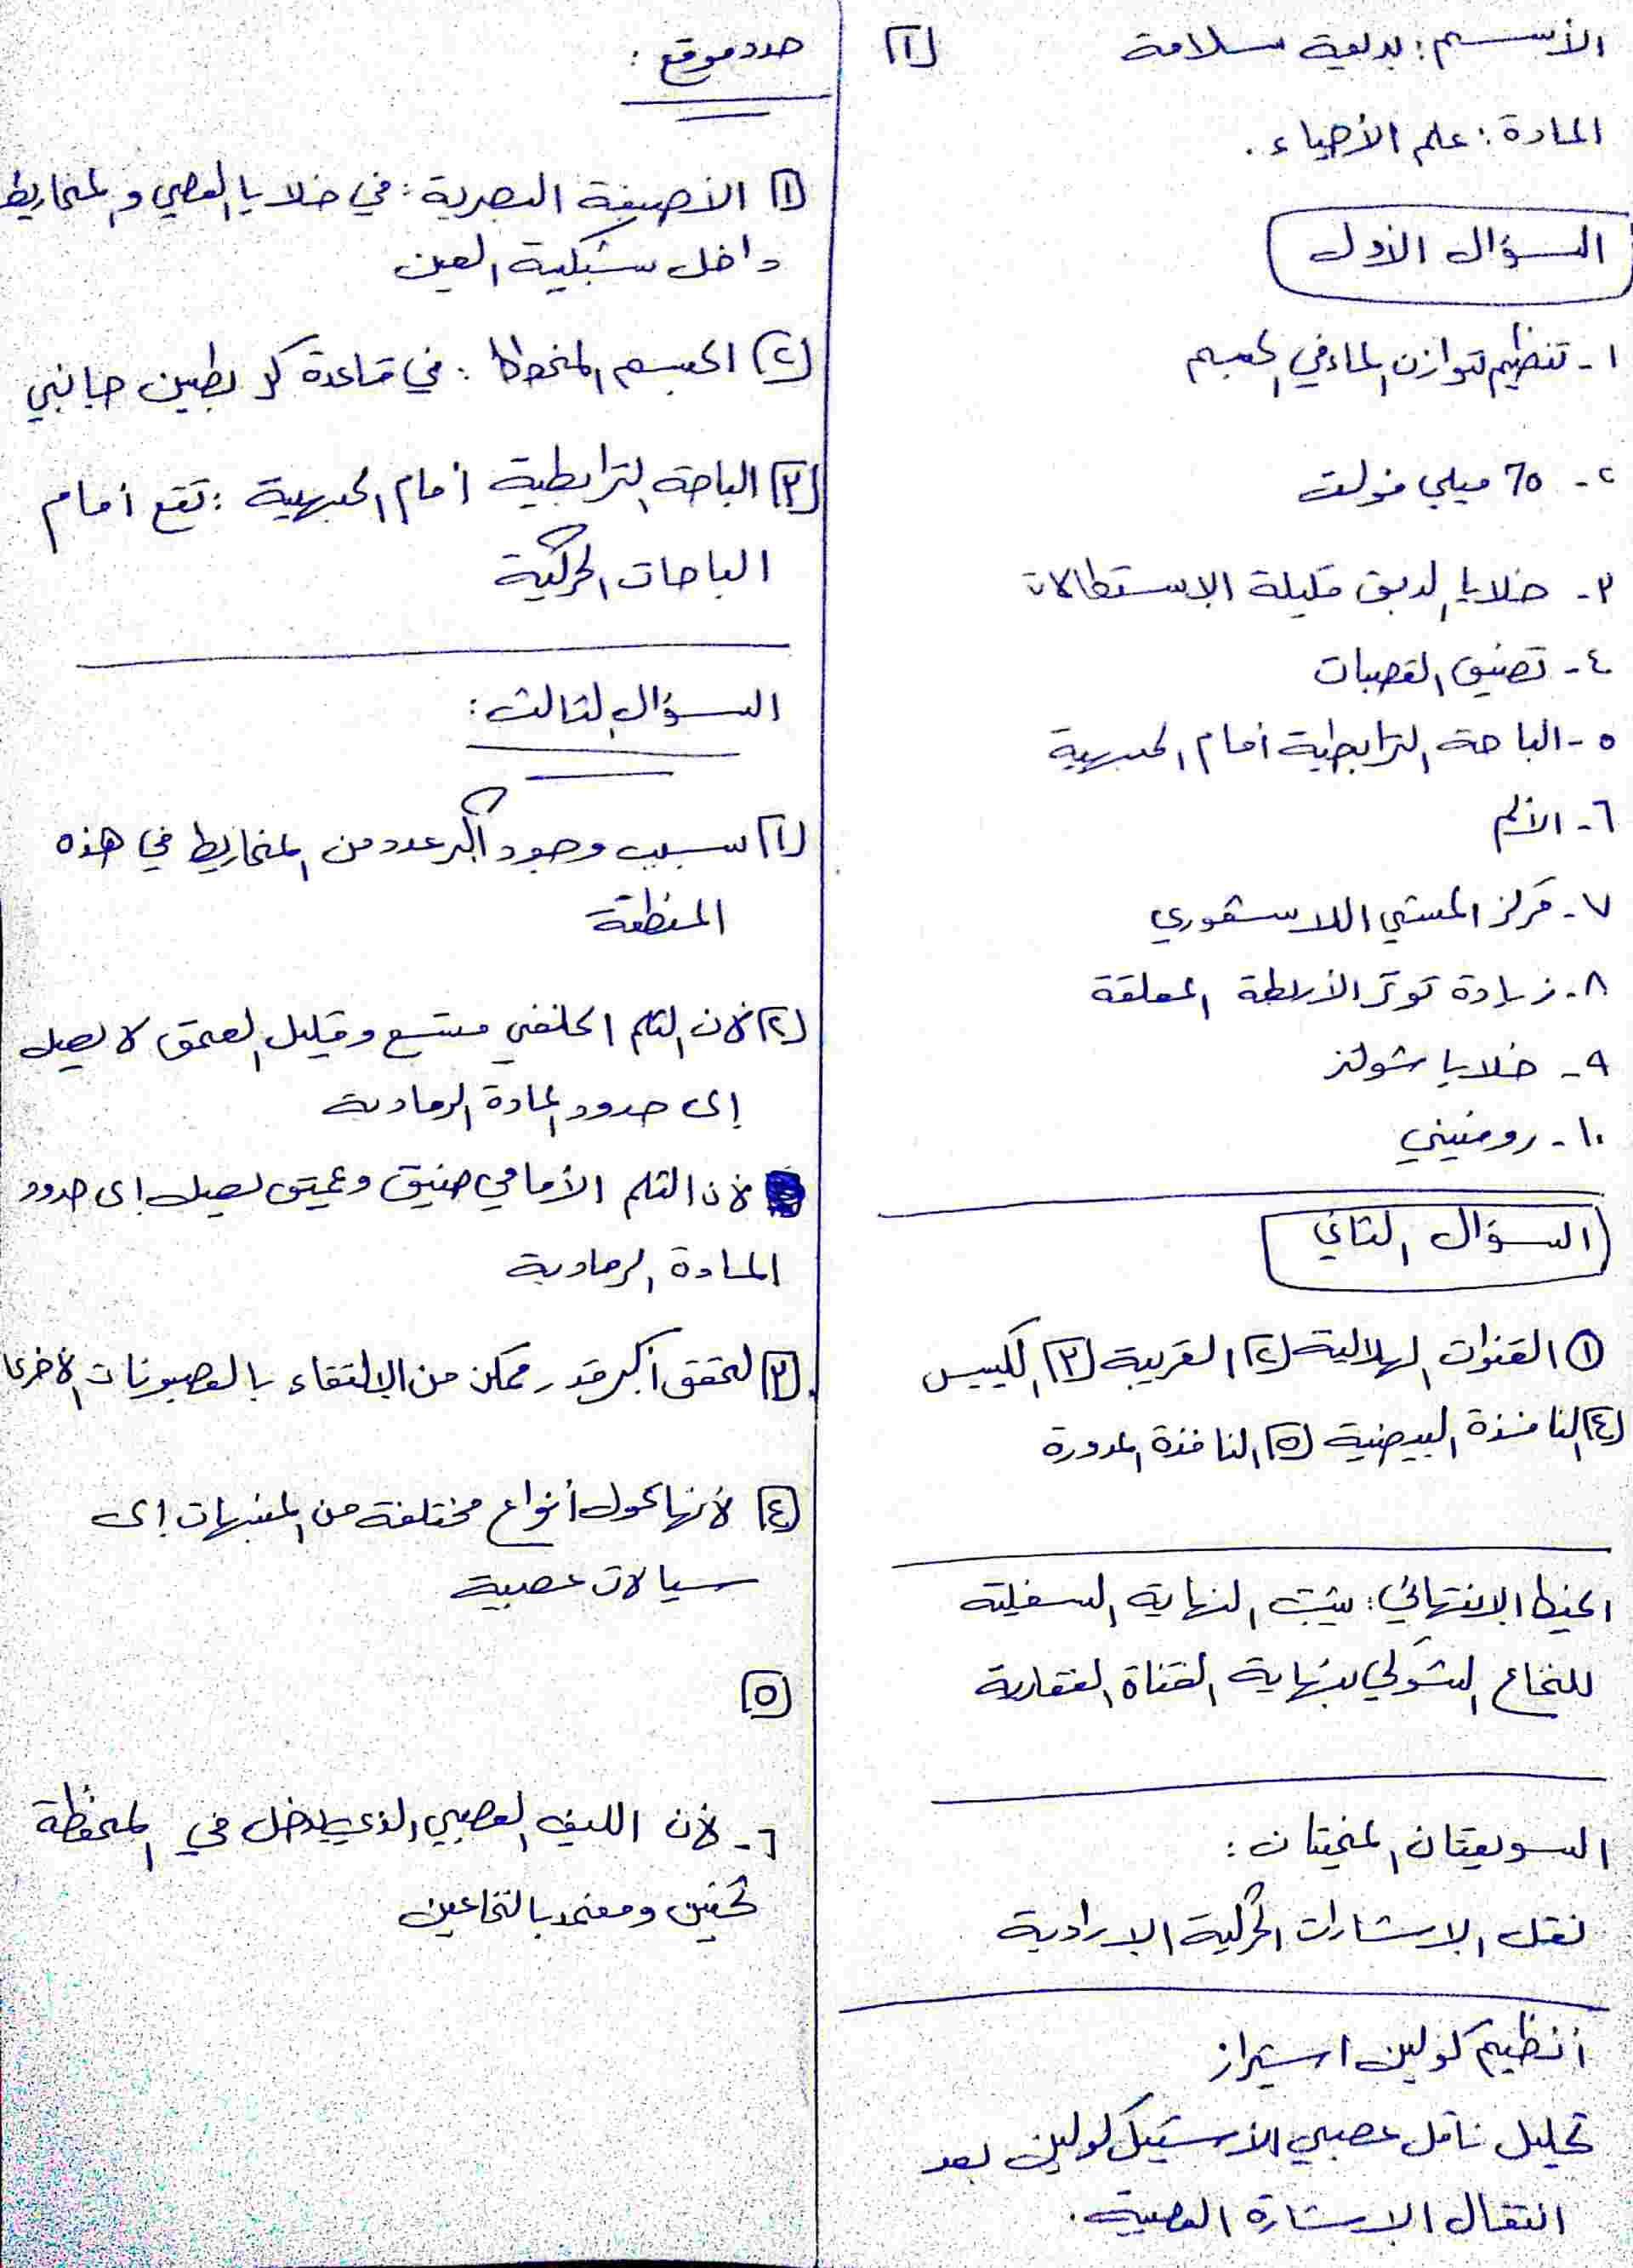 الأسم: بديعية سلامة
[١]
المادة: علم الأحياء.
السؤال الأول
١- تنظيم توازن الماء في الجسم
٢- 70 ميلي فولت
٣- خلايا الدبق قليلة الاستطالات
٤- تضيق القصبات
٥- الباحة الترابطية أمام الجبهية
٦- الألم
٧- مركز المشي اللاشعوري
٨- زيادة توتر الأربطة المعلقة
٩- خلايا شولتز
١٠- رودنيني
السؤال الثاني
① القنوات الهلالية [٢] القريبة [٣] الكييس
[٤] النافذة البيضية [٥] النافذة المدورة
الخيط الانتهائي: يثبت النهاية السفلية
للنخاع الشوكي بنهاية القناة الفقارية
السويقتان المخيتان:
نقل الاشارات الحركية الارادية
أنظيم كولين استيراز
تحليل ناقل عصبي الأستيل كولين بعد
انتقال الاشارة العصبية.
حدد موقع:
[١] الأصبغة البصرية: في خلايا العصي والمخاريط
داخل شبكية العين
[٢] الجسم المخطط: في قاعدة كل بطين جانبي
[٣] الباحة الترابطية أمام الجبهية: تقع أمام
الباحات الحركية
السؤال الثالث:
[١] سبب وجود أكبر عدد من المخاريط في هذه
المنطقة
[٢] لأن الثلم الخلفي متسع وقليل العمق لا يصل
إلى حدود المادة الرمادية
لأن الثلم الأمامي ضيق وعميق يصل إلى حدود
المادة الرمادية
[٣] لتحقق أكبر قدر ممكن من الالتقاء بالعصبونات الأخرى
[٤] لأنها تحول أنواع مختلفة من المنبهات إلى
سيالات عصبية
[٥]
٦- لأن الليف العصبي الذي يدخل في المحفظة
ثخين ومغمد بالنخاعين